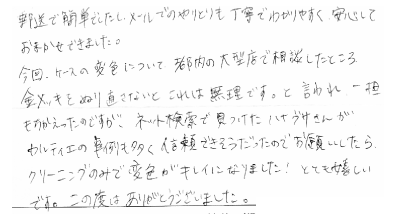 郵送で簡単でしたし、メールでのやりとりも丁寧でわかりやすく、安心して
おまかせできました。
今回、ケースの変色について 都内の大型店で相談したところ
金メッキをぬり直さないと これは無理です。と言われ 一担
もちかえったのですが、ネット検索で見つけたハナブサさんが
カルティエの事例も多く信頼できそうだったのでお願いしたら、
クリーニングのみで変色がキレイになりました！とても嬉しい
です。この度はありがとうございました。